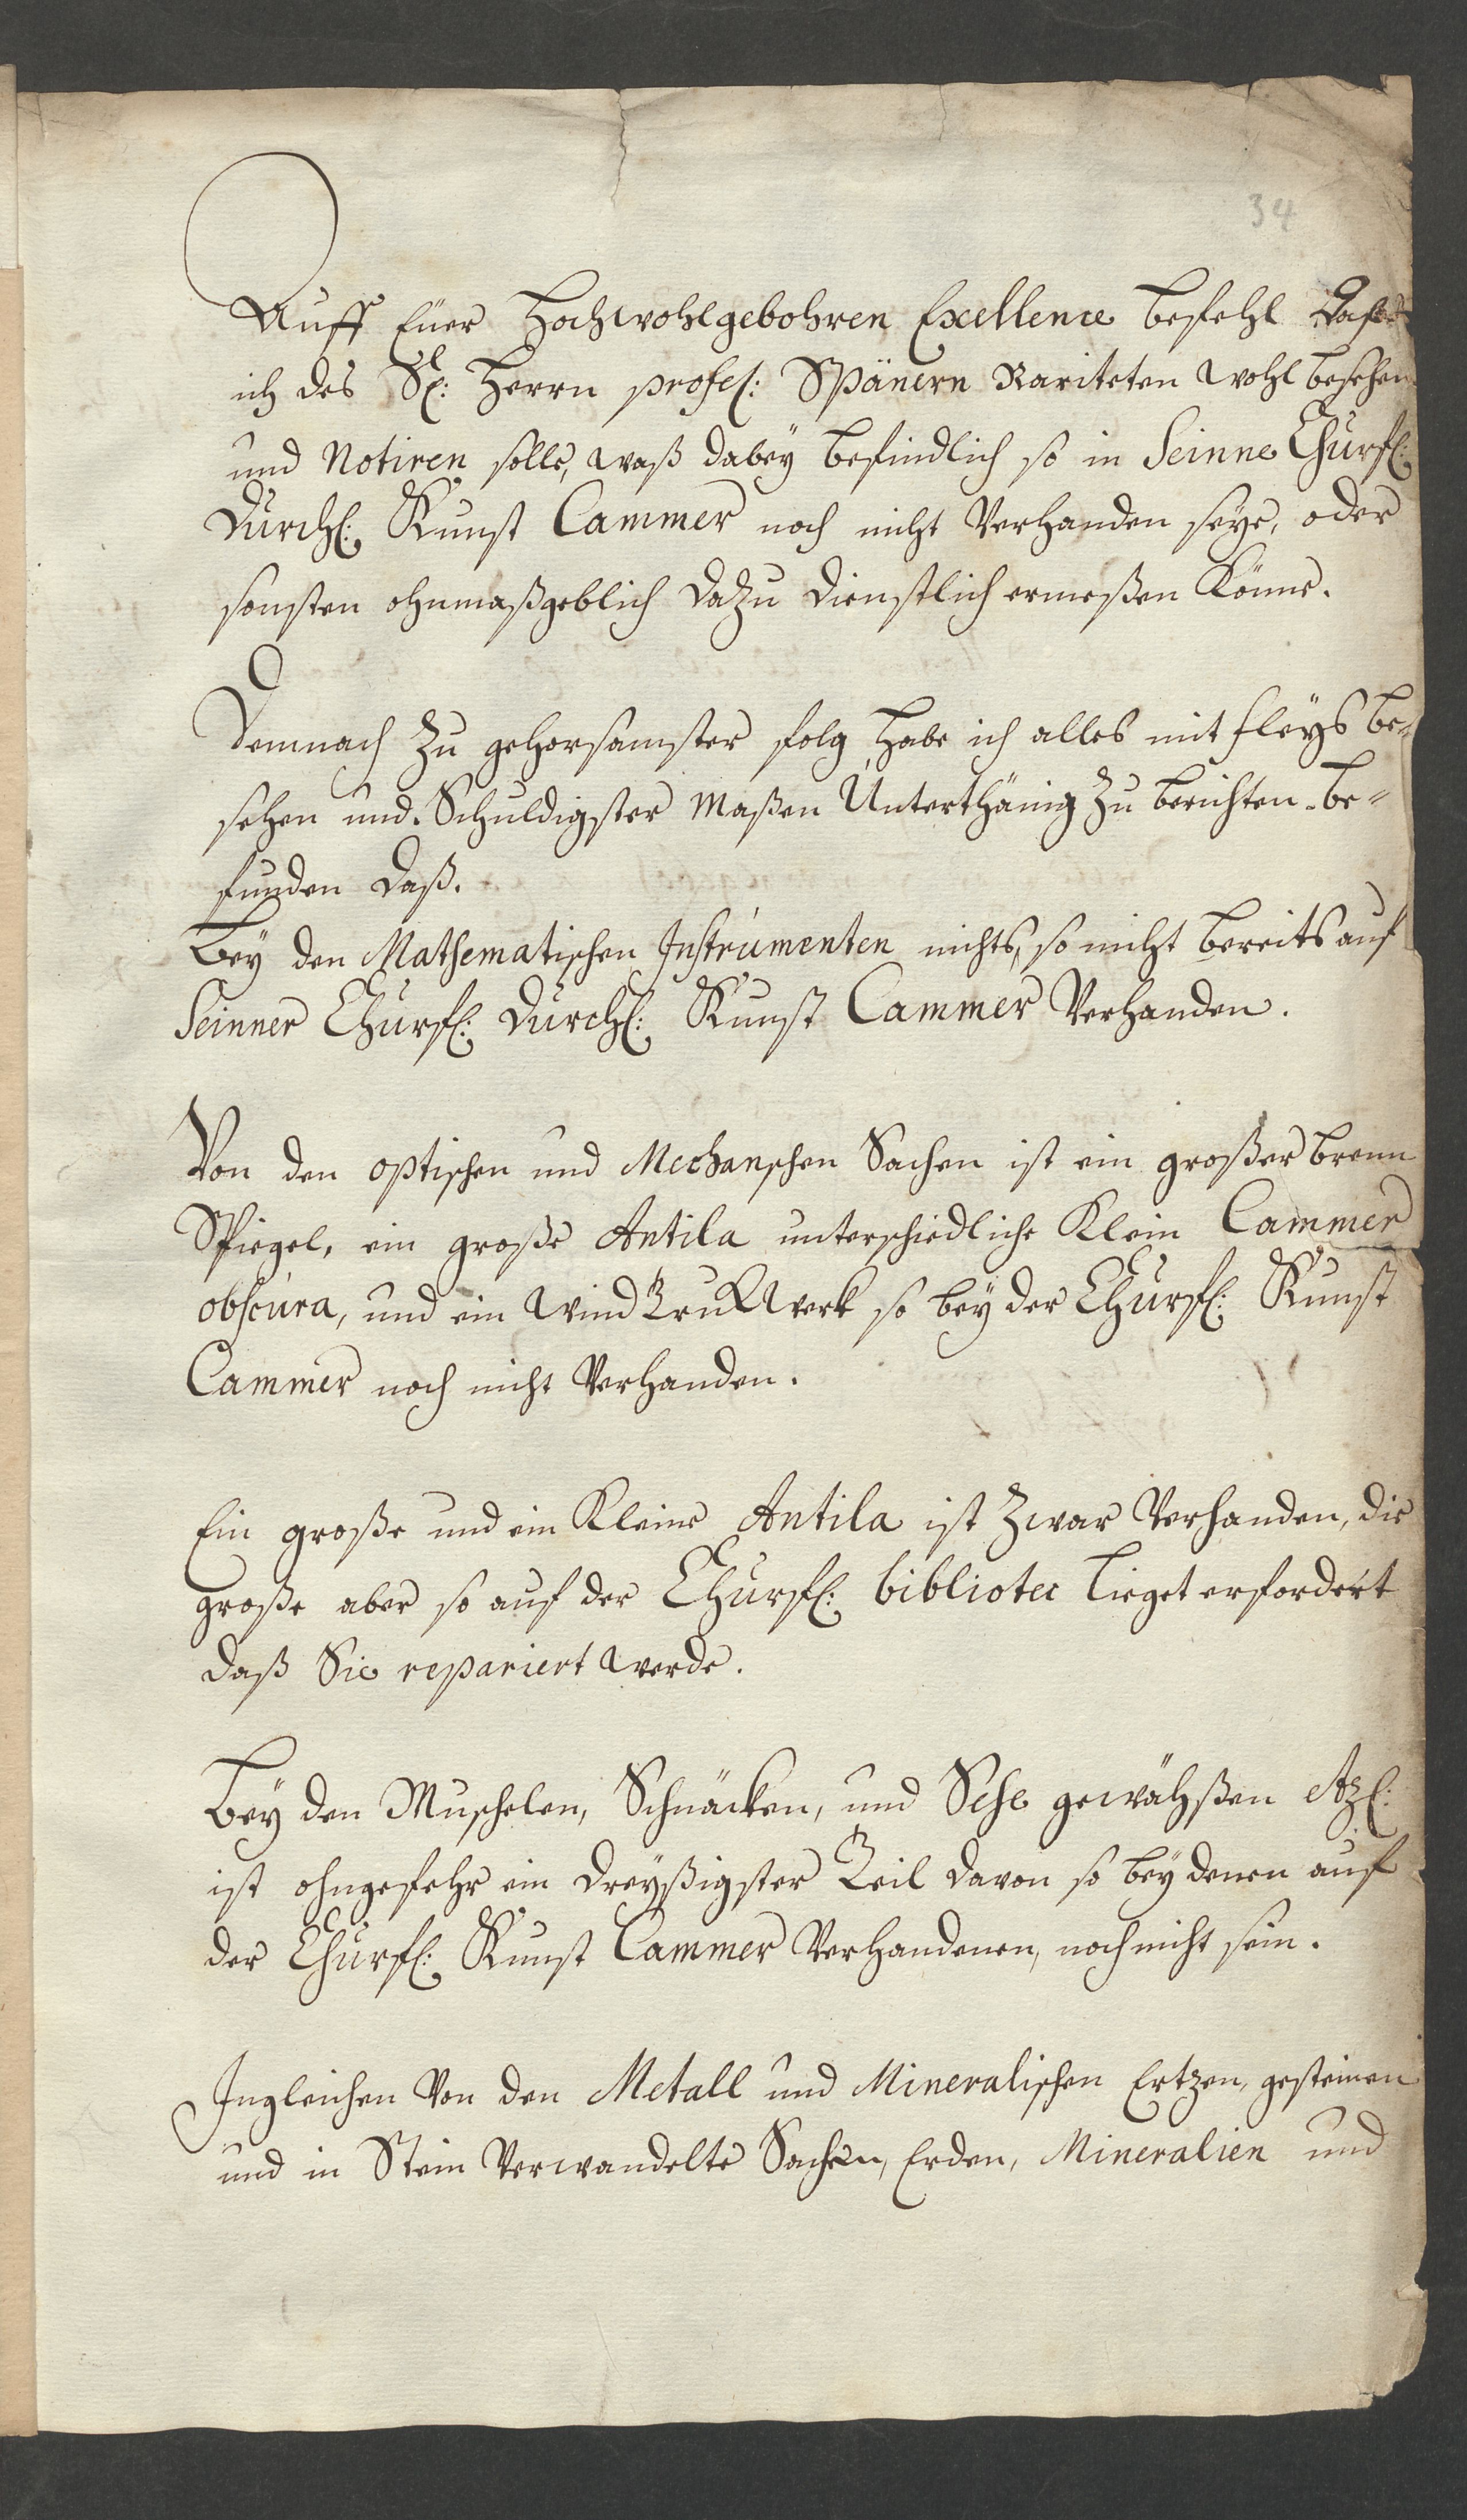 34
Auff Euer Hochwohlgebohren Excellence befehl Daß
ich des S[e]l: Herrn profes: Spänern Rariteten wohl besehen
und Notiren solle, waß dabey befindlich so in Seinne Churfl:
Durchl: Kunst Cammer noch nicht Verhanden seye, oder
sonsten ohnmaßgeblich dazu dienstlich ermeßen Könne.
Demnach zu gehorsamster folg habe ich alles mit fleyß be-
sehen und Schuldigster Maßen Unterthänig zu berichten be-
funden daß.
Bey den Mathematischen Instrumenten nichts, so nicht bereits auf
Seinner Churfl: Durchl: Kunst Cammer Verhanden.
Von den optischen und Mechanschen Sachen ist ein großer brenn
Spiegel, ein große Antila unterschiedliche Klein Cammer
obscura, und ein Wind Truk Werk so bey der Churfl: Kunst
Cammer noch nicht Verhanden.
Ein große und ein Kleine Antila ist Zwar Verhanden, die
große aber so auf der Churfl: bibliotec lieget erfordert
daß Sie repariert werde.
Bey den Muschelen, Schnäcken, und Sehe gewächßen
ist ohngefehr ein dreyßigster Teil davon so bey denen auf
der Churfl: Kunst Cammer Verhandenen, noch nicht sein.
Ingleichen Von den Metall und Mineralischen Ertzen, gesteinen
und in Stein Verwandelte Sachen, Erden, Mineralien und